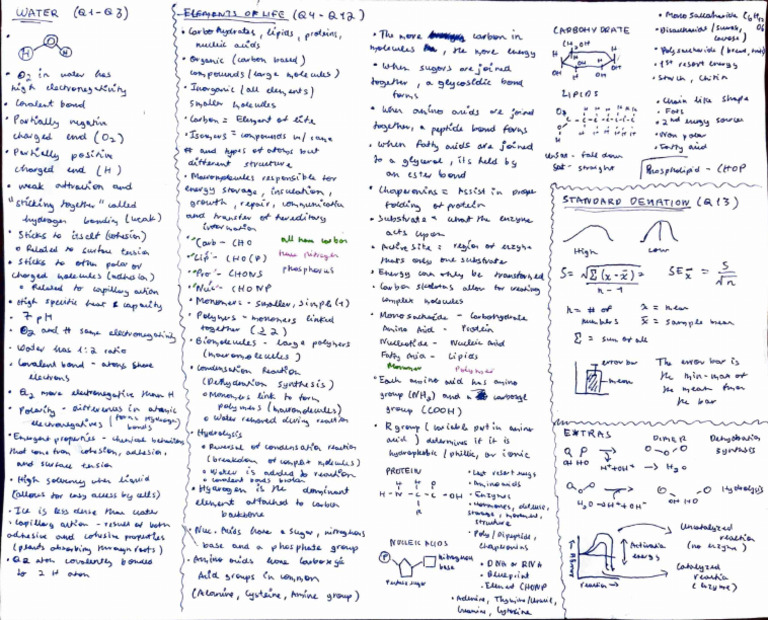 WATER (Q1-Q3)
H O H
• O2 in water has
high electronegativity
• Covalent bond
• Partially negative
charged end (O2)
• Partially positive
charged end (H)
• weak attraction and
"sticking together" called
hydrogen bonding (weak)
• Sticks to itself (cohesion)
• Related to surface tension
• Sticks to other polar or
charged molecules (adhesion)
• Related to capillary action
• High specific heat & capacity
• 7 pH
• O2 and H same electronegativity
• Water has 1:2 ratio
• Covalent bond - atoms share
electrons
• O2 more electronegative than H
• Polarity - differences in atomic
electronegativities (forms hydrogen
bonds)
• Emergent properties - chemical behaviors
that come from cohesion, adhesion,
and surface tension
• High solvency when liquid
(allows for easy access by cells)
• Ice is less dense than water
• Capillary action - result of both
adhesive and cohesive properties
(plants absorbing through roots)
• O2 atom covalently bonded
to 2 H atom
ELEMENTS OF LIFE (Q4-Q12)
• Carbohydrates, lipids, proteins,
nucleic acids
• Organic (carbon based)
compounds (large molecules)
• Inorganic (all elements)
smaller molecules
• Carbon = Element of life
• Isomers = compounds w/ same
# and types of atoms but
different structure
• Macromolecules responsible for
energy storage, insulation,
growth, repair, communication
and transfer of hereditary
information
Carb - CHO all have carbon
Lip - CHO(P) have nitrogen
Pro - CHONS phosphorus
Nuc - CHONP
• Monomers - smaller, simple (1)
• Polymers - monomers linked
together (≥2)
• Biomolecules - large polymers
(macromolecules)
• Condensation Reaction
(Dehydration synthesis)
• Monomers link to form
polymers (macromolecules)
• Water removed during reaction
• Hydrolysis
• Reversal of condensation reaction
(breakdown of complex molecules)
• Water is added to reaction
• covalent bonds broken
• Hydrogen is the dominant
element attached to carbon
backbone
• Nuc. Acids have a sugar, nitrogenous
base and a phosphate group
• Amino acids have carboxylic
Acid groups in common
(Alanine, Cysteine, Amine group)
• The more carbon in
molecules, the more energy
• When sugars are joined
together, a glycosidic bond
forms
• When amino acids are joined
together, a peptide bond forms
• When fatty acids are joined
to a glycerol, it is held by
an ester bond
• Chaperonins = Assist in proper
folding of protein
• Substrate = what the enzyme
acts upon
• Active site = region of enzyme
that's only one substrate
• Energy can only be transformed
• Carbon skeletons allow for creating
complex molecules
• Monosaccharide - Carbohydrate
Amino Acid - Protein
Nucleotide - Nucleic Acid
Fatty Acid - Lipids
Monomer Polymer
• Each amino acid has amino
group (NH2) and a carboxyl
group (COOH)
• R group (variable part in amino
acid) determines if it is
hydrophobic/phillic, or ionic
PROTEIN
H - N - C - C - OH
R
• Last resort energy
• Amino acids
• Enzymes
• Hormones, defense,
storage, movement,
structure
• Poly/Dipeptide,
chaperonins
NUCLEIC ACIDS
P
Nitrogenous
base
Pentose sugar
• DNA or RNA
• Blueprint
• Element CHONP
• Adenine, Thymine/Uracil,
Guanine, Cytosine
CARBOHYDRATE
CH2OH
H OH
• Monosaccharide (C6H12O6)
• Disaccharide
• Polysaccharide
• 1st resort energy
• Starch, Chitin
LIPIDS
• Chain like shape
• Fats
• 2nd energy source
• Non polar
• Fatty acid
unsat - fall down
Sat - straight
Phospholipid - CHOP
STANDARD DEVIATION (Q13)
High Low
S = √Σ(x-x̄)² / n-1 SEx̄ = S/√n
n = # of
numbers
x̄ = mean
x̄ = sample mean
Σ = sum of all
error bar
mean
The error bar is
the min-max of
the mean from
the bar
EXTRAS
DIMER Dehydration
synthesis
OH HO
H+ + OH- → H2O
H2O → H+ + OH-
OH HO
Hydrolysis
Uncatalyzed
reaction
(no enzyme)
Activation
energy
Catalyzed
reaction
(enzyme)
reaction →